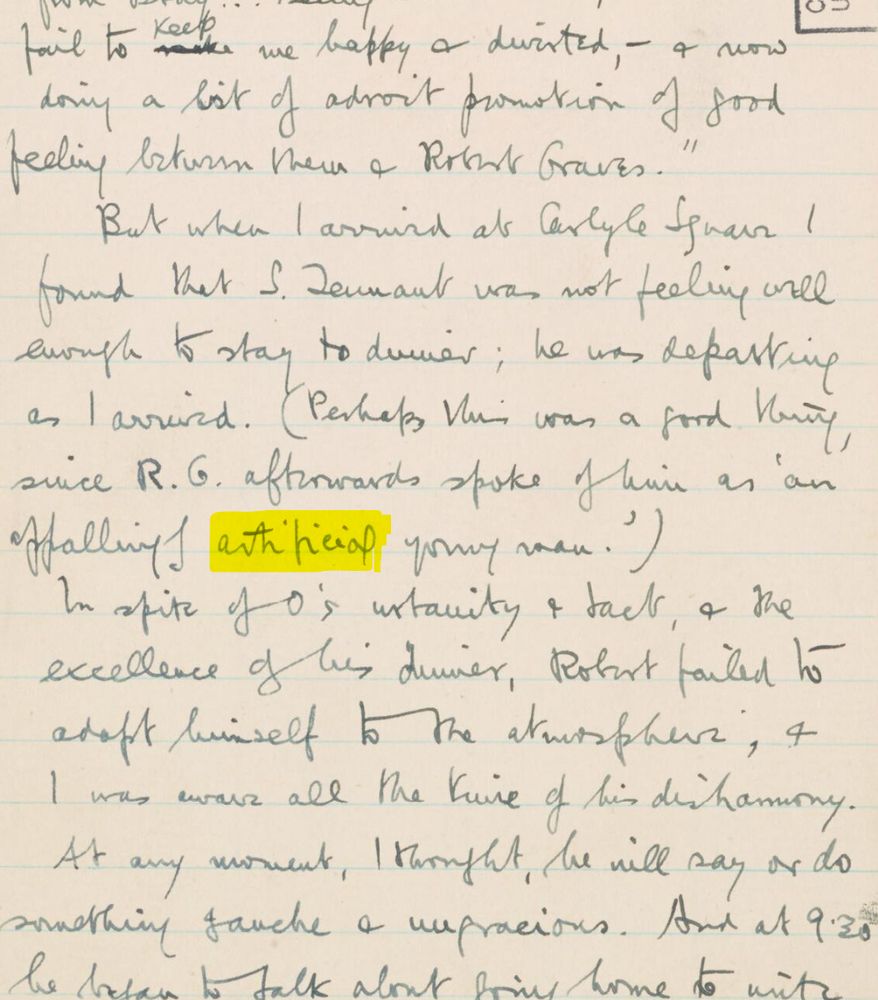 fail to keep me happy & diverted, – & now
doing a bit of adroit promotion of good
feeling between them & Robert Graves."
But when I arrived at Carlyle Square I
found that S. Tennant was not feeling well
enough to stay to dinner; he was departing
as I arrived. (Perhaps this was a good thing,
since R.G. afterwards spoke of him as 'an
appallingly artificial young man.')
In spite of O's urbanity & tact, & the
excellence of his dinner, Robert failed to
adapt himself to the atmosphere, &
I was aware all the time of his disharmony.
At any moment, I thought, he will say or do
something gauche & ungracious. And at 9.30
he began to talk about going home to write